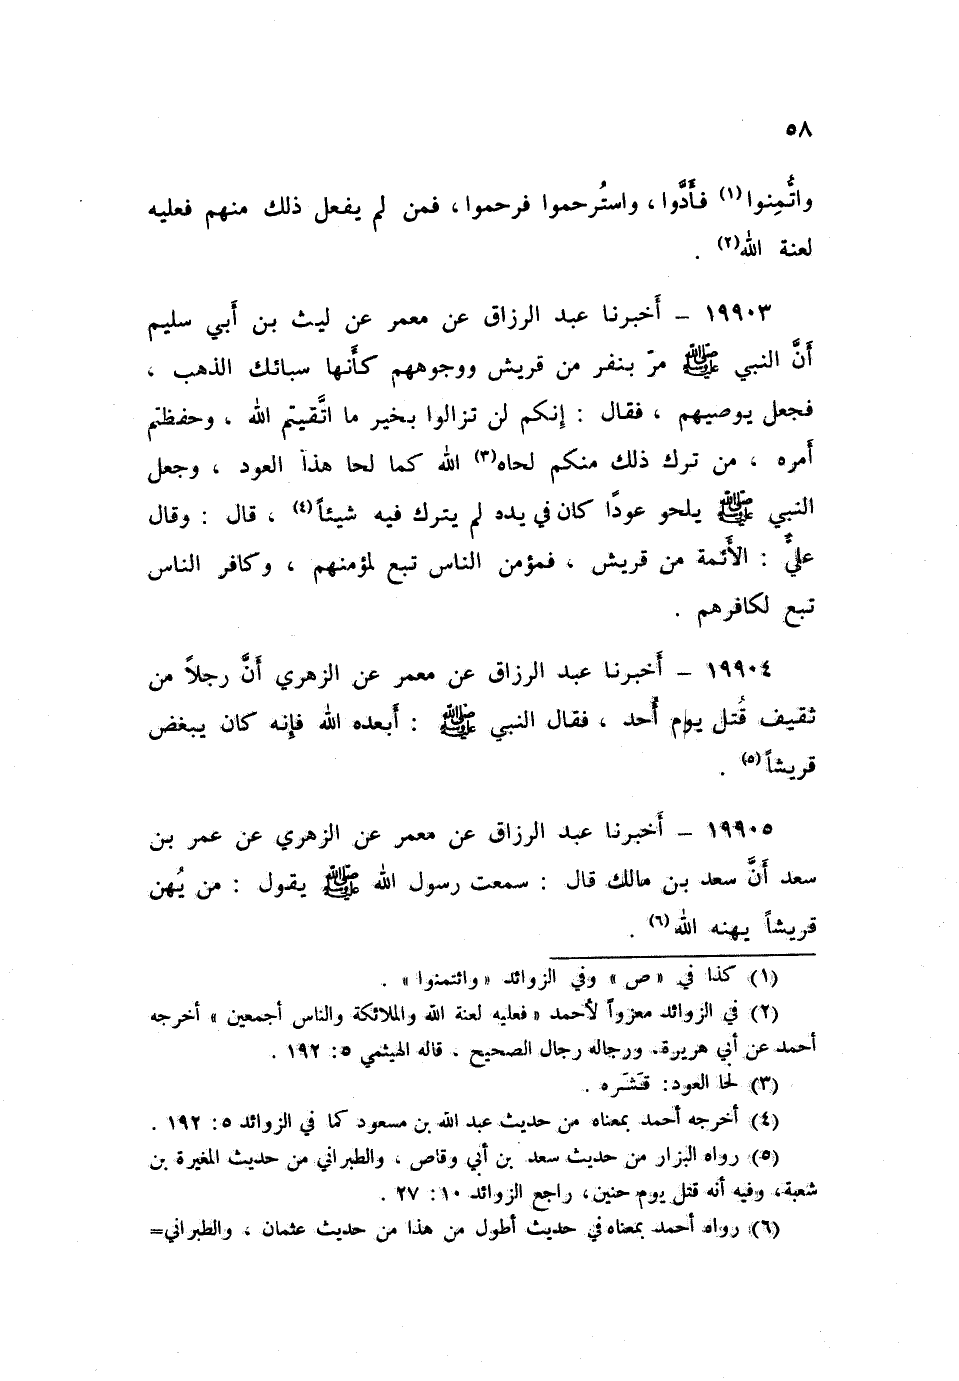 ٥٨
واتُّمِنوا(١) فأَدَّوا ، واستُرحموا فرحموا ، فمن لم يفعل ذلك منهم فعليه
لعنة الله(٢) .
١٩٩٠٣ – أَخبرنا عبد الرزاق عن معمر عن ليث بن أَبي سليم
أَنَّ النبي ﷺ مرّ بنفر من قريش ووجوههم كأَنها سبائك الذهب ،
فجعل يوصيهم ، فقال : إنكم لن تزالوا بخير ما اتَّقيتم الله ، وحفظتم
أَمره ، من ترك ذلك منكم لحاه(٣) الله كما لحا هذا العود ، وجعل
النبي ﷺ يلحو عودًا كان في يده لم يترك فيه شيئاً(٤) ، قال : وقال
عليٌّ : الأَئمة من قريش ، فمؤمن الناس تبع لمؤمنهم ، وكافر الناس
تبع لكافرهم .
١٩٩٠٤ – أَخبرنا عبد الرزاق عن معمر عن الزهري أَنَّ رجلاً من
ثقيف قُتل يوم أُحد ، فقال النبي ﷺ : أَبعده الله فإنه كان يبغض
قريشاً(٥) .
١٩٩٠٥ – أَخبرنا عبد الرزاق عن معمر عن الزهري عن عمر بن
سعد أَنَّ سعد بن مالك قال : سمعت رسول الله ﷺ يقول : من يُهن
قريشاً يهنه الله(٦) .
(١) كذا في « ص » وفي الزوائد « وائتمنوا » .
(٢) في الزوائد معزواً لأحمد « فعليه لعنة الله والملائكة والناس أجمعين » أخرجه
أحمد عن أبي هريرة. ورجاله رجال الصحيح ، قاله الهيثمي ٥: ١٩٢ .
(٣) لحا العود: قَشَره .
(٤) أخرجه أحمد بمعناه من حديث عبد الله بن مسعود كما في الزوائد ٥: ١٩٢ .
(٥) رواه البزار من حديث سعد بن أبي وقاص ، والطبراني من حديث المغيرة بن
شعبة، وفيه أنه قتل يوم حنين، راجع الزوائد ١٠: ٢٧ .
(٦) رواه أحمد بمعناه في حديث أطول من هذا من حديث عثمان ، والطبراني=